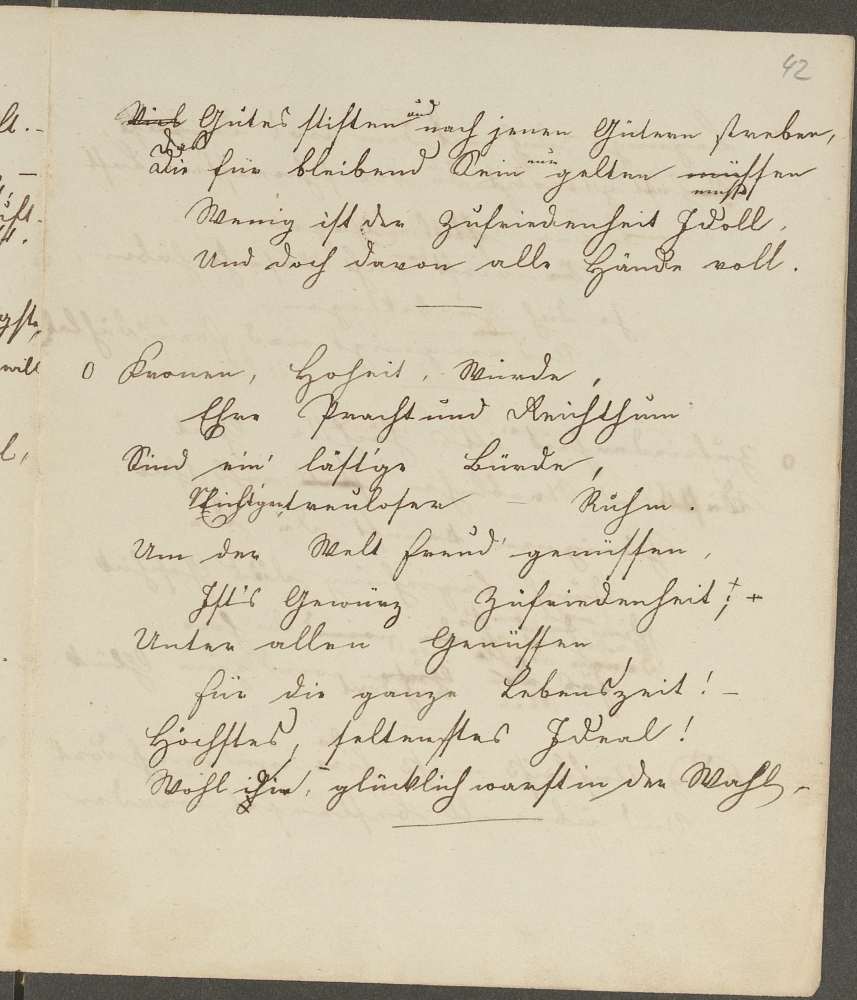 42
Viel Gutes stiften und nach jenen Gütern streben,
Die für bleibend Sein nur gelten müssen
Wenig ist der Zufriedenheit Idoll,
Und doch davon alle Hände voll.
0 Kronen, Hoheit, Würde,
Ehre Pracht und Reichthum
Sind ein' läst'ge Bürde,
treuloser – Ruhm.
Um der Welt Freud' genüssen,
Ist's Gewürz Zufriedenheit!
Unter allen Genüssen
für die ganze Lebenszeit! –
Höchstes, seltenstes Ideal!
Wohl dir, glücklich warst in der Wahl, –